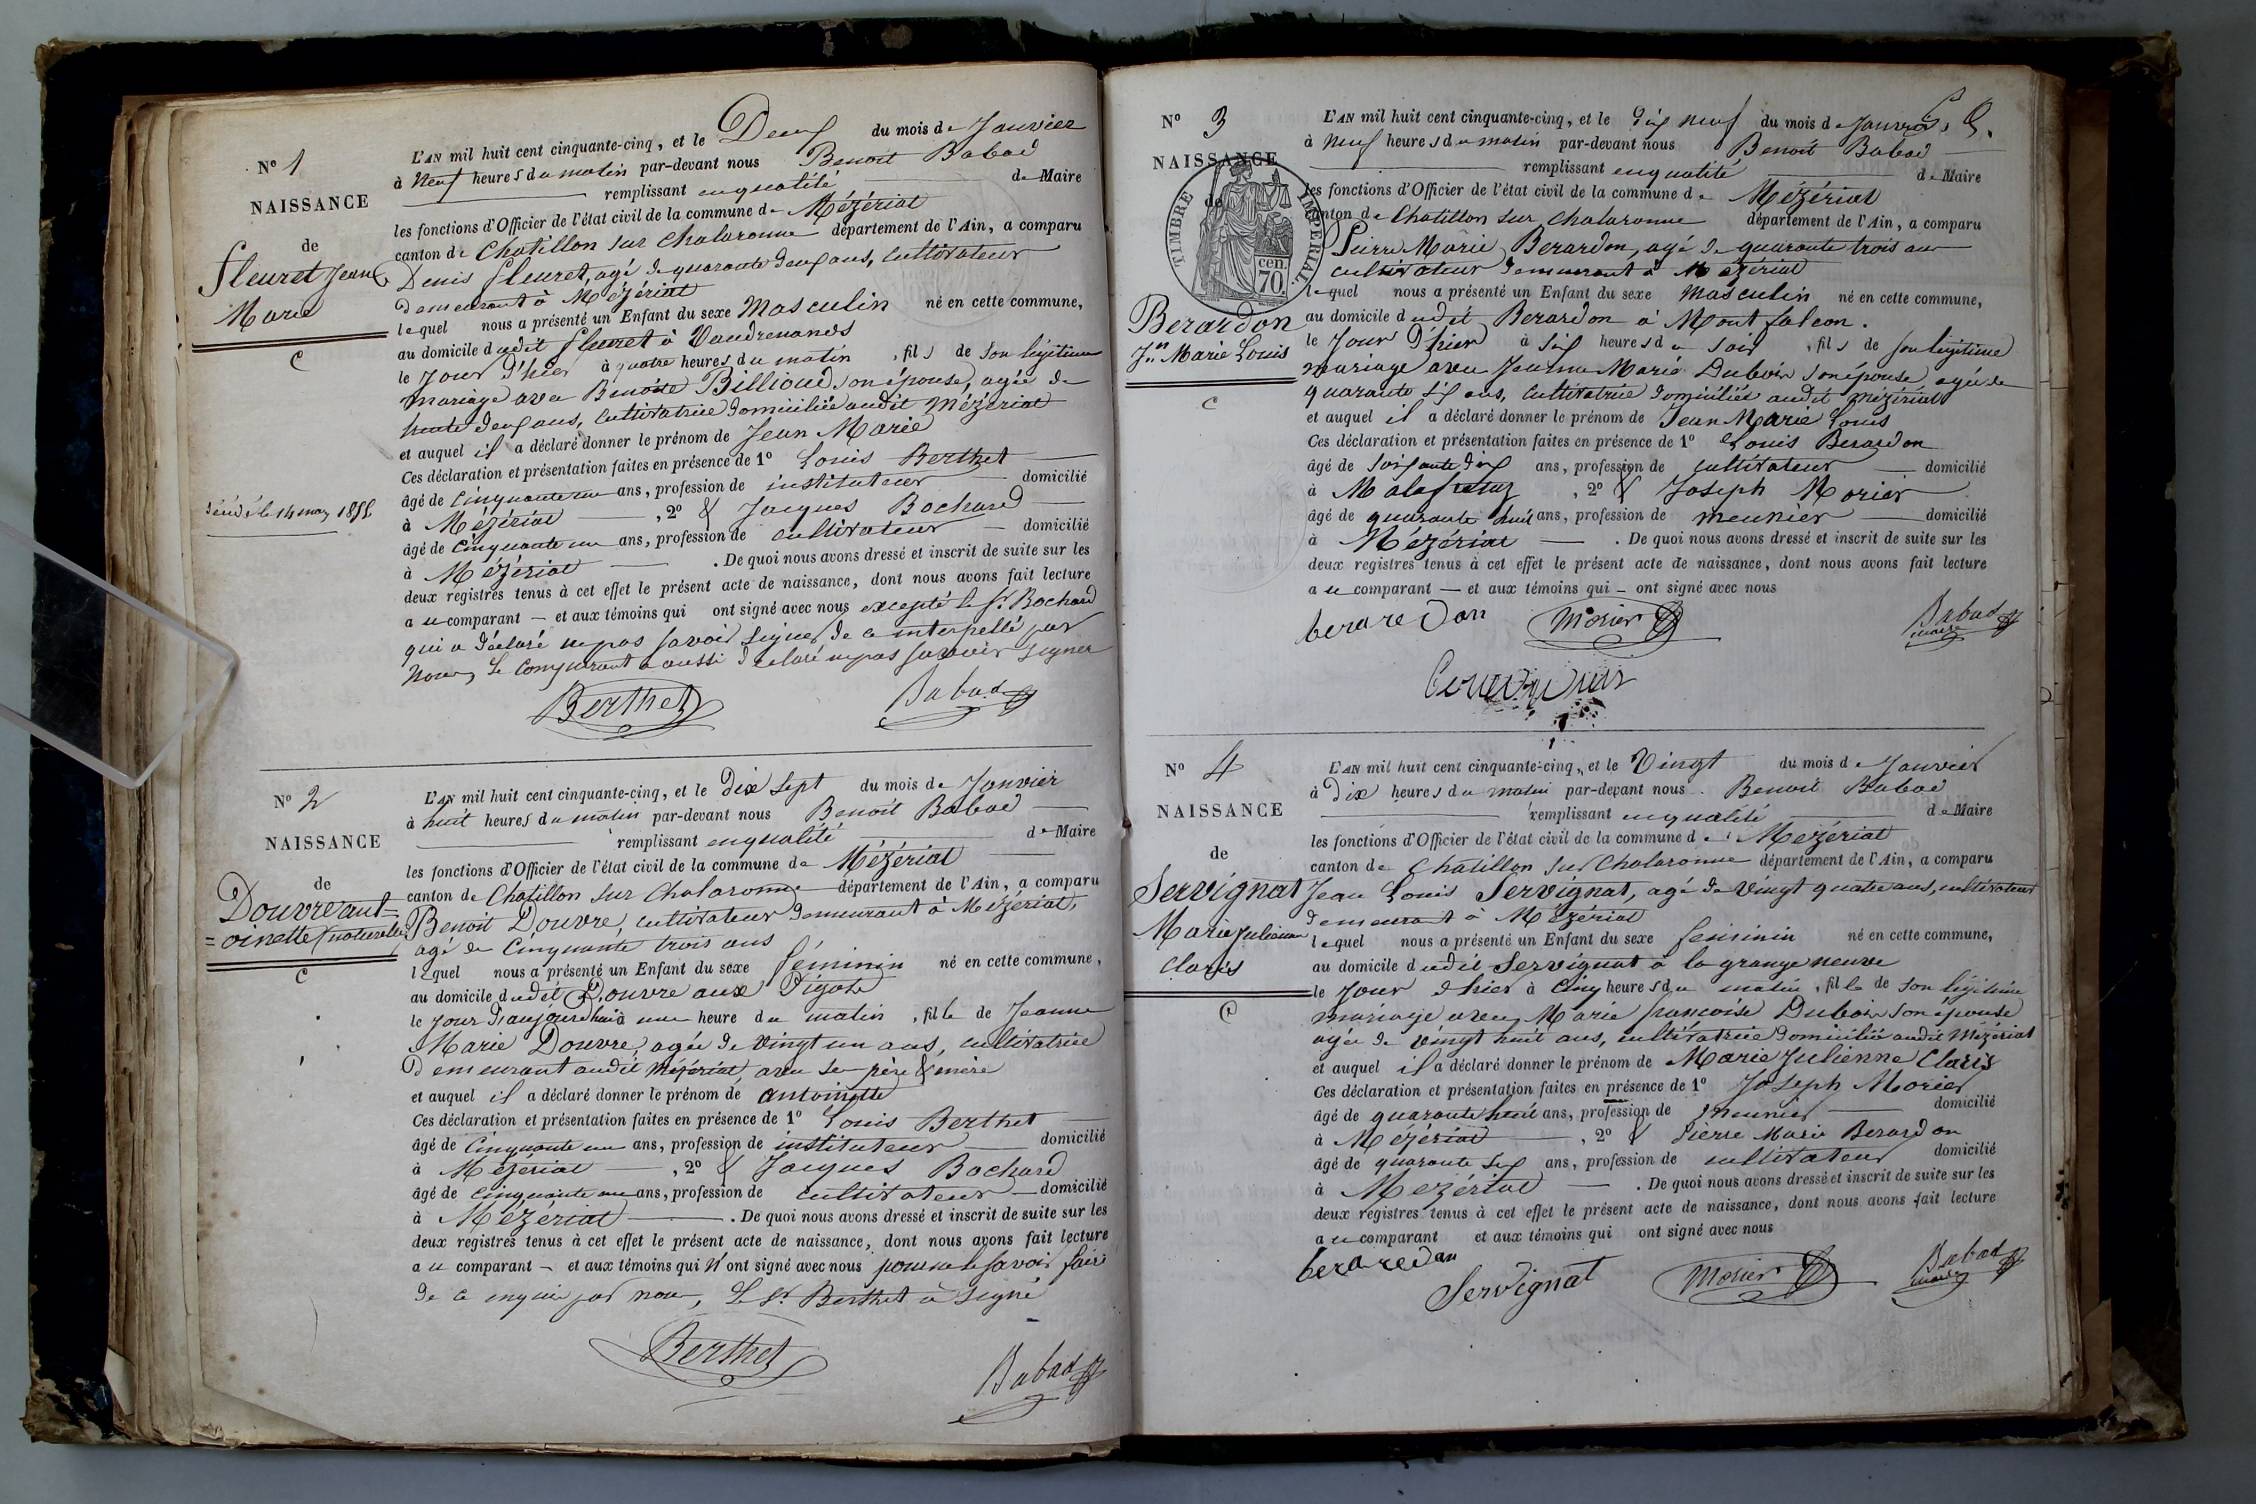 N° 1
NAISSANCE
de
fleuret Jean
Marie
C
L'AN mil huit cent cinquante-cinq, et le Deux du mois de Janvier
à Neuf heures du matin par-devant nous Benoit Babad
remplissant en qualité de Maire
les fonctions d'Officier de l'état civil de la commune de Mézériat
canton de Chatillon sur Chalaronne département de l'Ain, a comparu
Denis fleuret, agé de quarante deux ans, cultivateur
demeurant à Mézériat
lequel nous a présenté un Enfant du sexe Masculin né en cette commune,
au domicile dudit fleuret à Vaudrenands
le Jour d'hier à quatre heures du matin, fils de son légitime
mariage avec Benoite Billioud son épouse, agée de
trente deux ans, cultivatrice domiciliée audit Mézériat
et auquel il a déclaré donner le prénom de Jean Marie
Ces déclaration et présentation faites en présence de 1° Louis Berthet
âgé de cinquante un ans, profession de instituteur domicilié
à Mézériat, 2° & Jacques Bochard
âgé de cinquante un ans, profession de cultivateur domicilié
à Mézériat. De quoi nous avons dressé et inscrit de suite sur les
deux registres tenus à cet effet le présent acte de naissance, dont nous avons fait lecture
au comparant et aux témoins qui ont signé avec nous excepté le Sr Bochard
qui a déclaré ne pas savoir signer de ce interpellé par
Nous, le comparant a aussi déclaré ne pas savoir signer
Berthet Babad
le 14 may 1855
N° 2
NAISSANCE
de
Douvre ant=
=oinette (naturelle)
C
L'AN mil huit cent cinquante-cinq, et le dix sept du mois de Janvier
à huit heures du matin par-devant nous Benoit Babad
remplissant en qualité de Maire
les fonctions d'Officier de l'état civil de la commune de Mézériat
canton de Chatillon sur Chalaronne département de l'Ain, a comparu
Benoit Douvre, cultivateur demeurant à Mézériat,
agé de Cinquante trois ans
lequel nous a présenté un Enfant du sexe féminin né en cette commune,
au domicile dudit Douvre aux
le jour d'aujourd'hui à une heure du matin, fille de Jeanne
Marie Douvre agée de Vingt un ans, cultivatrice
Demeurant audit Mézériat, avec ses père & mère
et auquel il a déclaré donner le prénom de antoinette
Ces déclaration et présentation faites en présence de 1° Louis Berthet
âgé de cinquante un ans, profession de instituteur domicilié
à Mézériat, 2° & Jacques Bochard
âgé de cinquante un ans, profession de cultivateur domicilié
à Mézériat. De quoi nous avons dressé et inscrit de suite sur les
deux registres tenus à cet effet le présent acte de naissance, dont nous avons fait lecture
au comparant et aux témoins qui n'ont signé avec nous pour ne le savoir faire
de ce enquis par nous, Le Sr Berthet a signé
Berthet Babad
N° 3
NAISSANCE
de
TIMBRE IMPERIAL.
cen.
70.
Berardon
Jn Marie Louis
C
L'AN mil huit cent cinquante-cinq, et le dix neuf du mois de Janvier
à Neuf heures du matin par-devant nous Benoit Babad
remplissant en qualité de Maire
les fonctions d'Officier de l'état civil de la commune de Mézériat
canton de Chatillon sur Chalaronne département de l'Ain, a comparu
Pierre Marie Berardon, agé de quarante trois ans
cultivateur demeurant à Mézériat
lequel nous a présenté un Enfant du sexe Masculin né en cette commune,
au domicile dudit Berardon à Montfalcon.
le Jour D'hier à six heures du soir, fils de son légitime
mariage avec Jeanne Marie Dubois son épouse agée de
quarante six ans, cultivatrice domiciliée audit Mézériat
et auquel il a déclaré donner le prénom de Jean Marie Louis
Ces déclaration et présentation faites en présence de 1° Louis Berardon
âgé de soixante dix ans, profession de cultivateur domicilié
à Malafretaz, 2° & Joseph Morier
âgé de quarante huit ans, profession de meunier domicilié
à Mézériat. De quoi nous avons dressé et inscrit de suite sur les
deux registres tenus à cet effet le présent acte de naissance, dont nous avons fait lecture
au comparant et aux témoins qui ont signé avec nous
beraredon Morier Babad
maire
N° 4
NAISSANCE
de
Servignat
Marie Julienne
Claris
C
L'AN mil huit cent cinquante-cinq, et le Vingt du mois de Janvier
à Dix heures du matin par-devant nous Benoit Babad
remplissant en qualité de Maire
les fonctions d'Officier de l'état civil de la commune de Mézériat
canton de Chatillon sur Chalaronne département de l'Ain, a comparu
Jean Louis Servignat, agé de Vingt quatre ans, cultivateur
demeurant à Mézériat
lequel nous a présenté un Enfant du sexe feminin né en cette commune,
au domicile dudit Servignat à la grange neuve
le Jour d'hier à Cinq heures du matin, fille de son légitime
mariage avec Marie françoise Dubois son épouse
agée de vingt huit ans, cultivatrice domiciliée audit Mézériat
et auquel il a déclaré donner le prénom de Marie Julienne Claris
Ces déclaration et présentation faites en présence de 1° Joseph Morier
âgé de quarante huit ans, profession de meunier domicilié
à Mézériat, 2° & Pierre Marie Berardon
âgé de quarante six ans, profession de cultivateur domicilié
à Mézériat. De quoi nous avons dressé et inscrit de suite sur les
deux registres tenus à cet effet le présent acte de naissance, dont nous avons fait lecture
au comparant et aux témoins qui ont signé avec nous
beraredon Servignat Morier Babad
maire